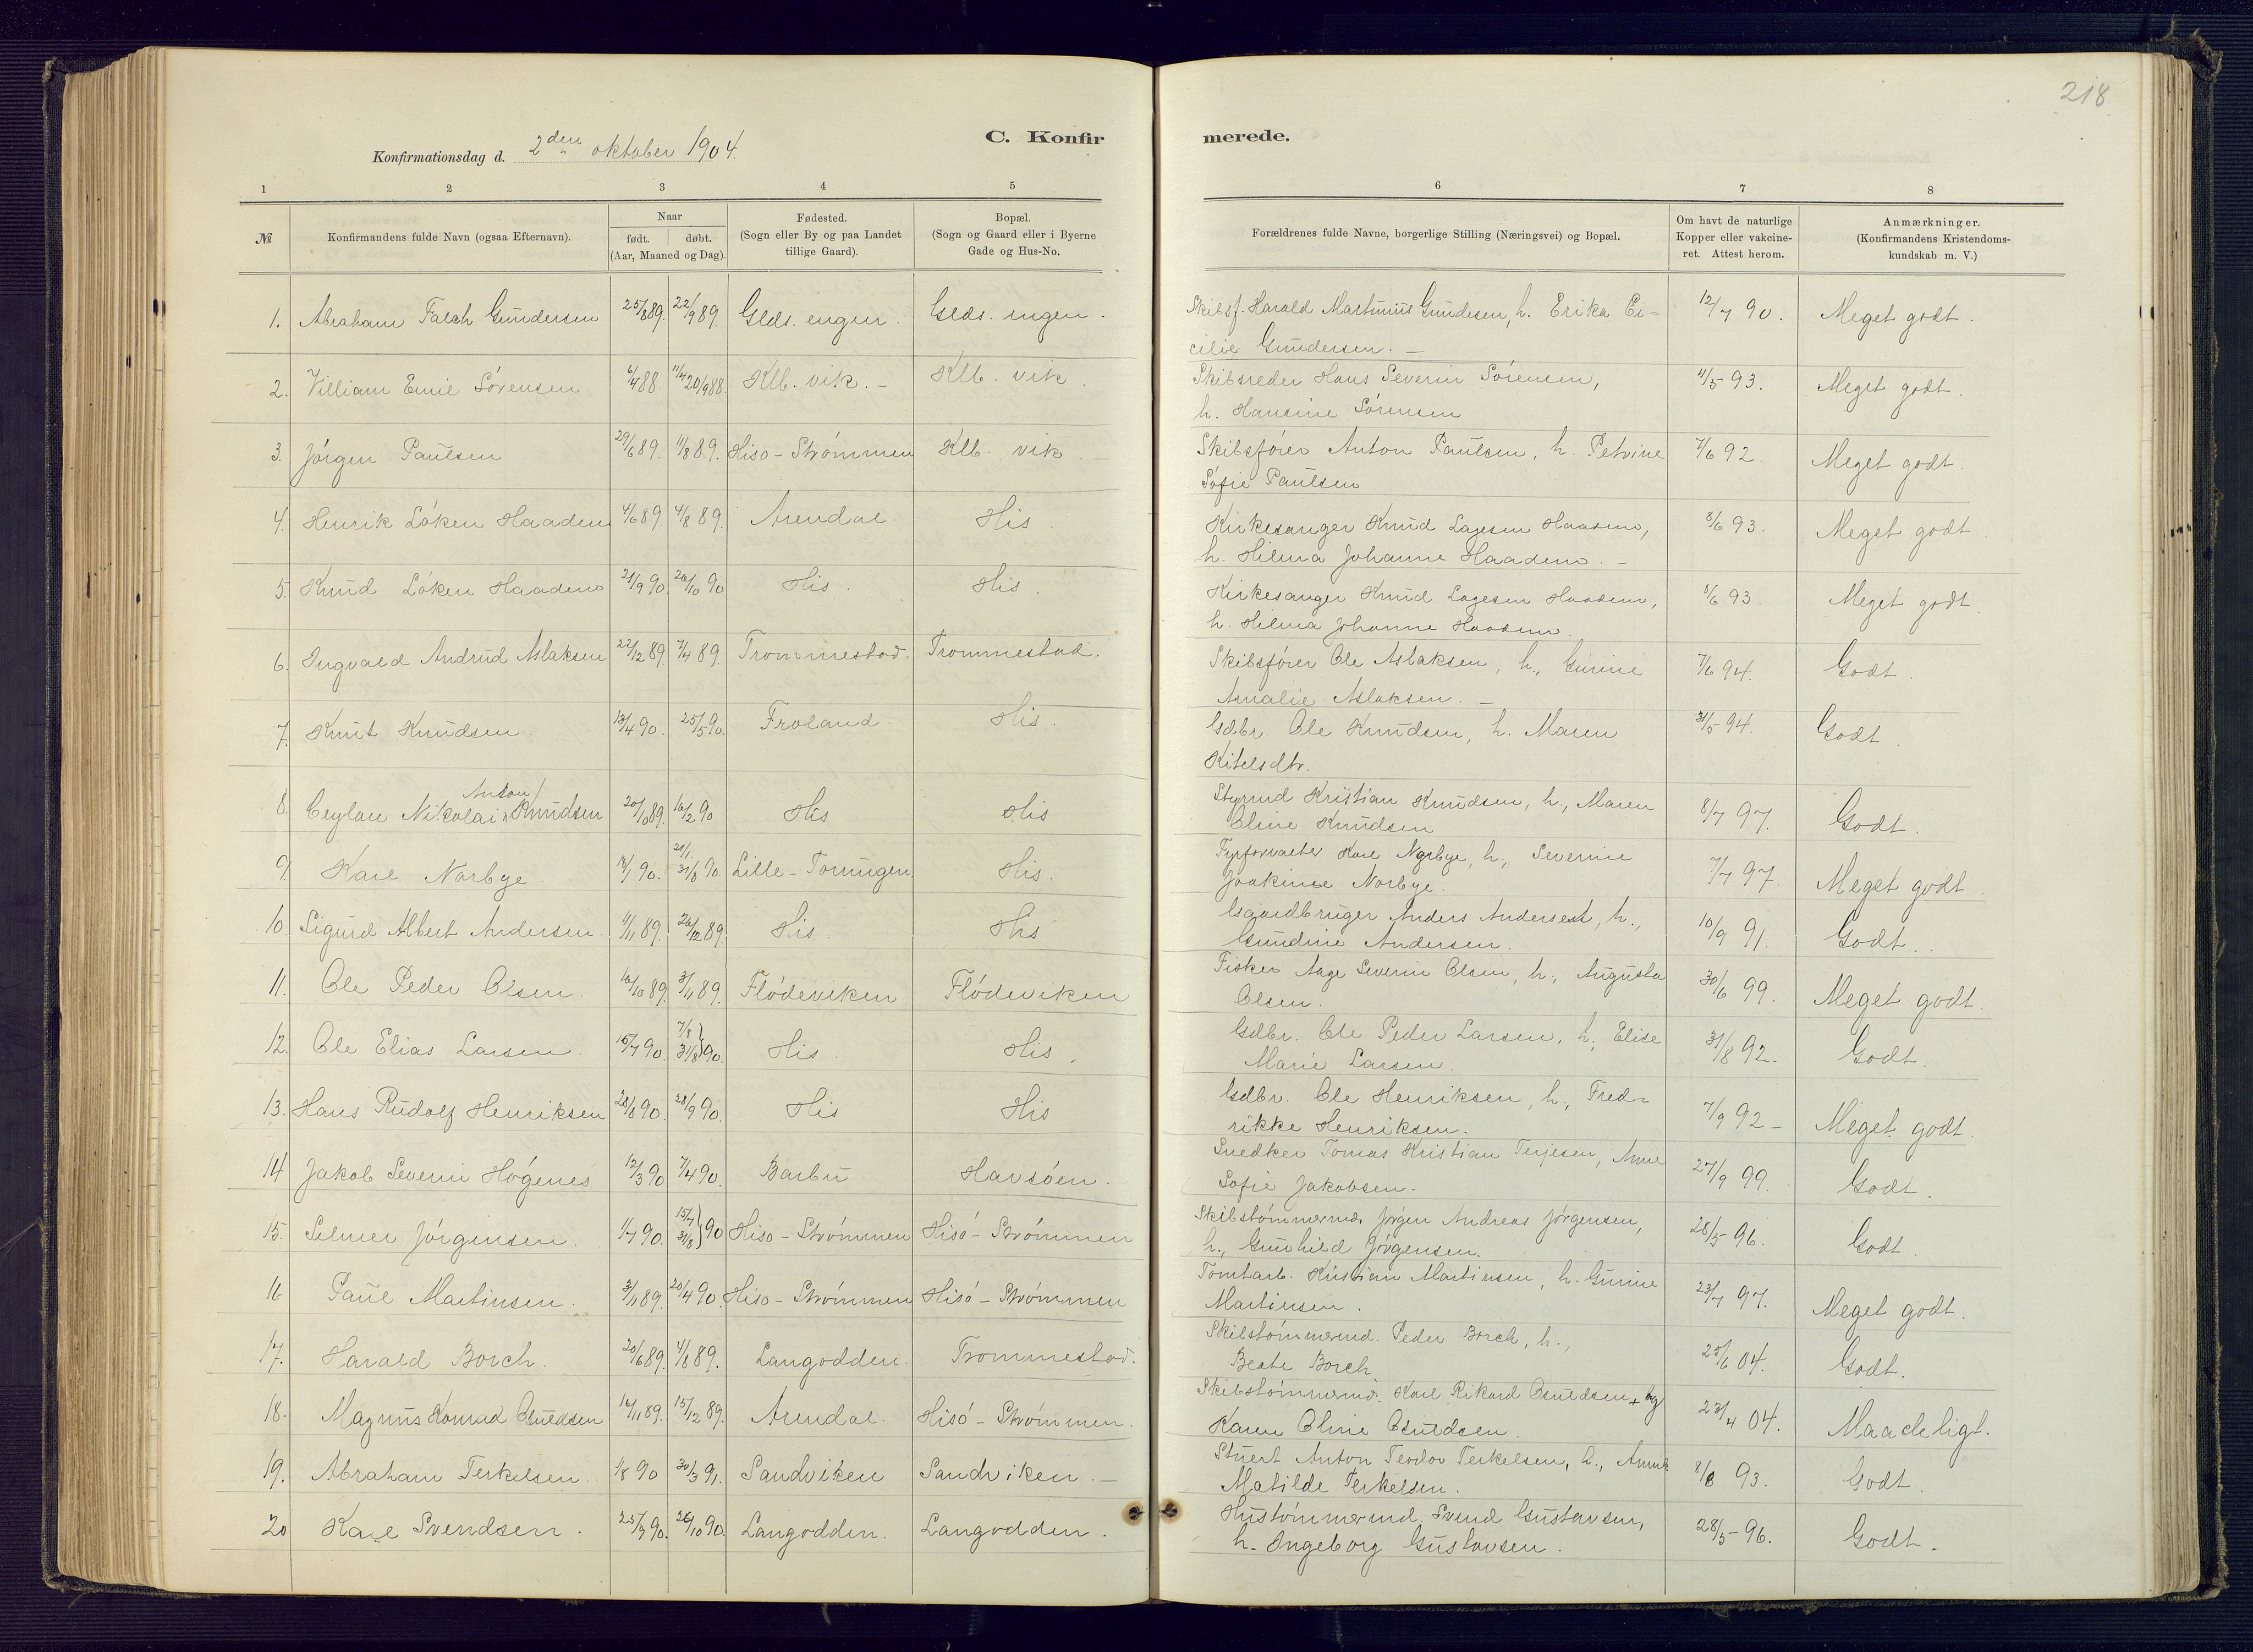 218
C. Konfirmerede.
Konfirmationsdag d. 2den oktober 1904.
1 2 3 4 5 6 7 8
№ Konfirmandens fulde Navn (ogsaa Efternavn). Naar født. døbt. (Aar, Maaned og Dag). Fødested. (Sogn eller By og paa Landet tillige Gaard). Bopæl. (Sogn og Gaard eller i Byerne Gade og Hus-No. Forældrenes fulde Navne, borgerlige Stilling (Næringsvei) og Bopæl. Om havt de naturlige Kopper eller vakcineret. Attest herom. Anmærkninger. (Konfirmandens Kristendomskundskab m. V.)
1. Abraham Falch Gundersen 25/8 89. 22/9 89. Glds. engen. Glds. engen. Skibsf. Harald Martinius Gundesen, h. Erika Ce= 12/7 90. Meget godt.
cilie Gundersen. —
2. Villiam Emil Sörensen 6/4 88. 11/4 20/9 88. Klb. vik. - Klb. vik. Skibsreder Hans Severin Sörensen, 4/5 93. Meget godt.
h. Hansine Sörensen
3. Jörgen Paulsen 29/6 89. 11/8 89. Hisö - Strömmen Klb. vik. Skibsförer Anton Paulsen, h. Petrine 7/6 92. Meget godt.
Sofie Paulsen
4. Henrik Löken Haadem 4/6 89. 4/8 89. Arendal His. Kirkesanger Knud Lagesen Haadem, 8/6 93. Meget godt
h. Hilma Johanne Haadem. —
5. Knud Löken Haadem 21/9 90. 26/10 90 His. His. Kirkesanger Knud Lagesen Haadem, 8/6 93. Meget godt.
h. Hilma Johanne Haadem.
6. Ingvald Andrud Aslaksen 22/12 89. 7/4 89. Trommestad. Trommestad. Skibsförer Ole Aslaksen, h., Gunine 7/6 94. Godt.
Amalie Aslaksen. —
7. Knut Knudsen 13/4 90. 25/5 90. Froland. His. Gdbr. Ole Knudsen, h. Maren 31/5 94. Godt.
Kitelsdtr.
8. Ceylon Nikolai Anton Knudsen 20/10 89. 16/2 90 His His Styrmd Kristian Knudsen, h., Maren 8/7 97. Godt.
Oline Knudsen
9 Karl Norbye 90. 31/8 90. Lille - Torungen. His. Fyrforvalter Karl Norbye, h., Severine 7/7 97. Meget godt.
Joakime Norbye.
10. Sigurd Albert Andersen. 1/11 89. 26/12 89. His. His Gaardbruger Anders Andersen, h., 10/9 91. Godt.
Gundine Andersen.
11. Ole Peder Olsen. 16/10 89. 3/11 89. Flödeviken Flödeviken Fisker Aage Severin Olsen, h., Augusta 30/6 99. Meget godt.
Olsen.
12. Ole Elias Larsen. 15/7 90. 7/8 31/8 } 90. His. His. Gdbr. Ole Peder Larsen, h., Elise 31/8 92. Godt.
Marie Larsen.
13. Hans Rudolf Henriksen 28/8 90. 28/9 90. His His Gdbr. Ole Henriksen, h., Fred- 7/9 92 - Meget godt.
rikke Henriksen.
14 Jakob Severin Högenes 12/3 90 7/4 90. Barbu Havsöen. Snedker Tomas Kristian Terjesen, Anne 27/9 99. Godt.
Sofie Jakobsen.
15. Selmer Jörgensen. 1/7 90. 15/7 31/8 } 90 Hisö - Strömmen Hisö - Strömmen Skibstömmermd. Jörgen Andreas Jörgensen, 28/5 96. Godt.
h., Gunhild Jörgensen.
16 Paul Martinsen. 3/11 89. 20/4 90. Hisö - Strömmen Hisö - Strömmen Tomtarb. Kristian Martinsen, h. Gunine 23/7 97. Meget godt.
Martinsen.
17. Harald Borch. 20/6 89. 4/8 89. Langodden. Trommestad. Skibstömmermd. Peder Borch, h., 25/6 04. Godt.
Beate Borch
18. Magnus Konrad Osuldsen 16/11 89. 15/12 89. Arendal. Hisö - Strömmen. Skibstömmermd. Karl Rikard Osuldsen + og 23/4 04. Maadeligt.
Karen Oline Osuldsen.
19. Abraham Terkelsen. 1/8 90 30/3 91. Sandviken Sandviken. — Stuert Anton Teodor Terkelsen, h., Anne 8/6 93. Godt.
Matilde Terkelsen.
20 Karl Svendsen. 25/9 90. 26/10 90. Langodden. Langodden. Hustömmermd. Svend Gustavsen, 28/5 96. Godt.
h. Ingeborg Gustavsen.